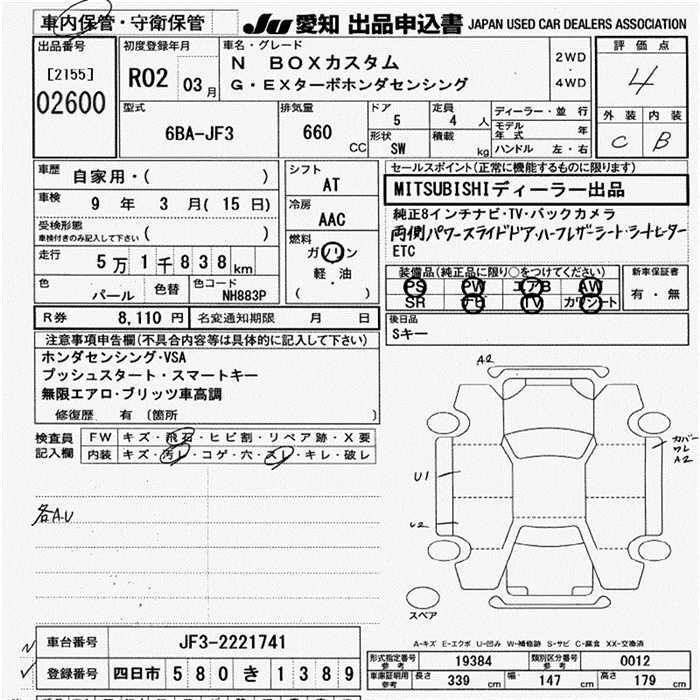 車内保管・守衛保管
JU 愛知 出品申込書 JAPAN USED CAR DEALERS ASSOCIATION
出品番号
[2155]
02600
初度登録年月
R02 03 月
車名・グレード
N BOXカスタム
G・EXターボホンダセンシング
2WD
・
4WD
評価点
4
外装 内装
C B
型式
6BA-JF3
排気量
660 CC
ドア
5
定員
4 人
形状
SW
積載
kg
ディーラー・並行
モデル年式 年
ハンドル 左・右
車歴
自家用・( )
車検
9 年 3 月 ( 15 日)
受検形態
車検付きのみ記入して下さい ( )
走行
5万1千838km
色
パール
色替
色コード
NH883P
シフト
AT
冷房
AAC
燃料
ガソリン
軽・油
( )
セールスポイント(正常に機能するものに限ります)
MITSUBISHIディーラー出品
純正8インチナビ・TV・バックカメラ
両側パワースライドドア・ハーフレザーシート・シートヒーター
ETC
装備品(純正品に限り○をつけてください)
PS PW エアB AW
SR ナビ TV カワシート
新車保証書
有・無
後日品
Sキー
R券 8,110 円 名変通知期限 月 日
注意事項申告欄(不具合内容等は具体的に記入して下さい)
ホンダセンシング・VSA
プッシュスタート・スマートキー
無限エアロ・ブリッツ車高調
修復歴 有 (箇所 )
検査員記入欄
FW キズ・飛石・ヒビ割・リペア跡・X要
内装 キズ・汚レ・コゲ・穴・スレ・キレ・破レ
各A.U
A2
U1
U2
カバー
ワレ
A2
スペア
A-キズ E-エクボ U-凹み W-補修跡 S-サビ C-腐食 XX-交換済
車台番号 JF3-2221741
登録番号 四日市 580 き 1389
型式指定番号 参考 19384
類別区分番号 参考 0012
車庫証明用 参考 長さ 339 cm 幅 147 cm 高さ 179 cm